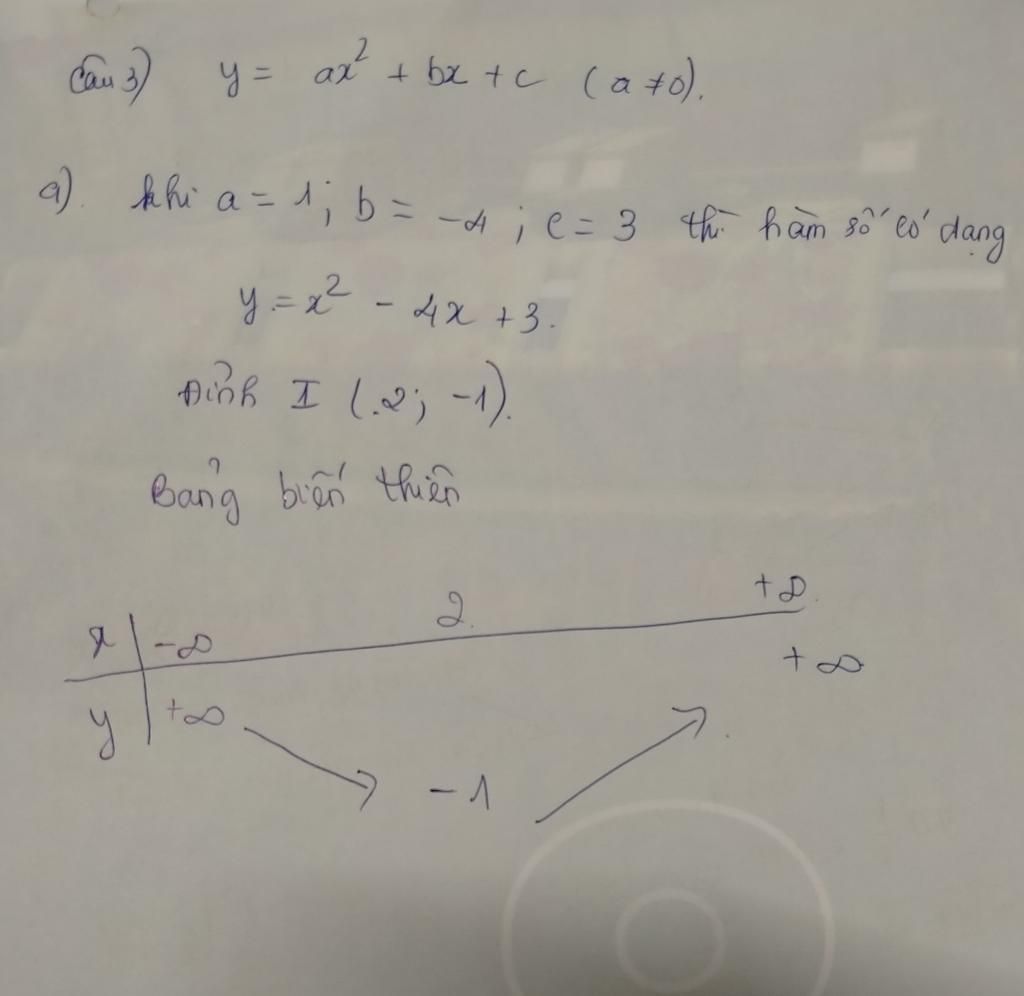 Câu 3) y = ax² + bx + c (a ≠ 0).
a). khi a = 1; b = -4; c = 3 thì hàm số có dạng
y = x² - 4x + 3.
Đỉnh I (2; -1).
Bảng biến thiên
x -∞ 2 +∞
y +∞ -1 +∞